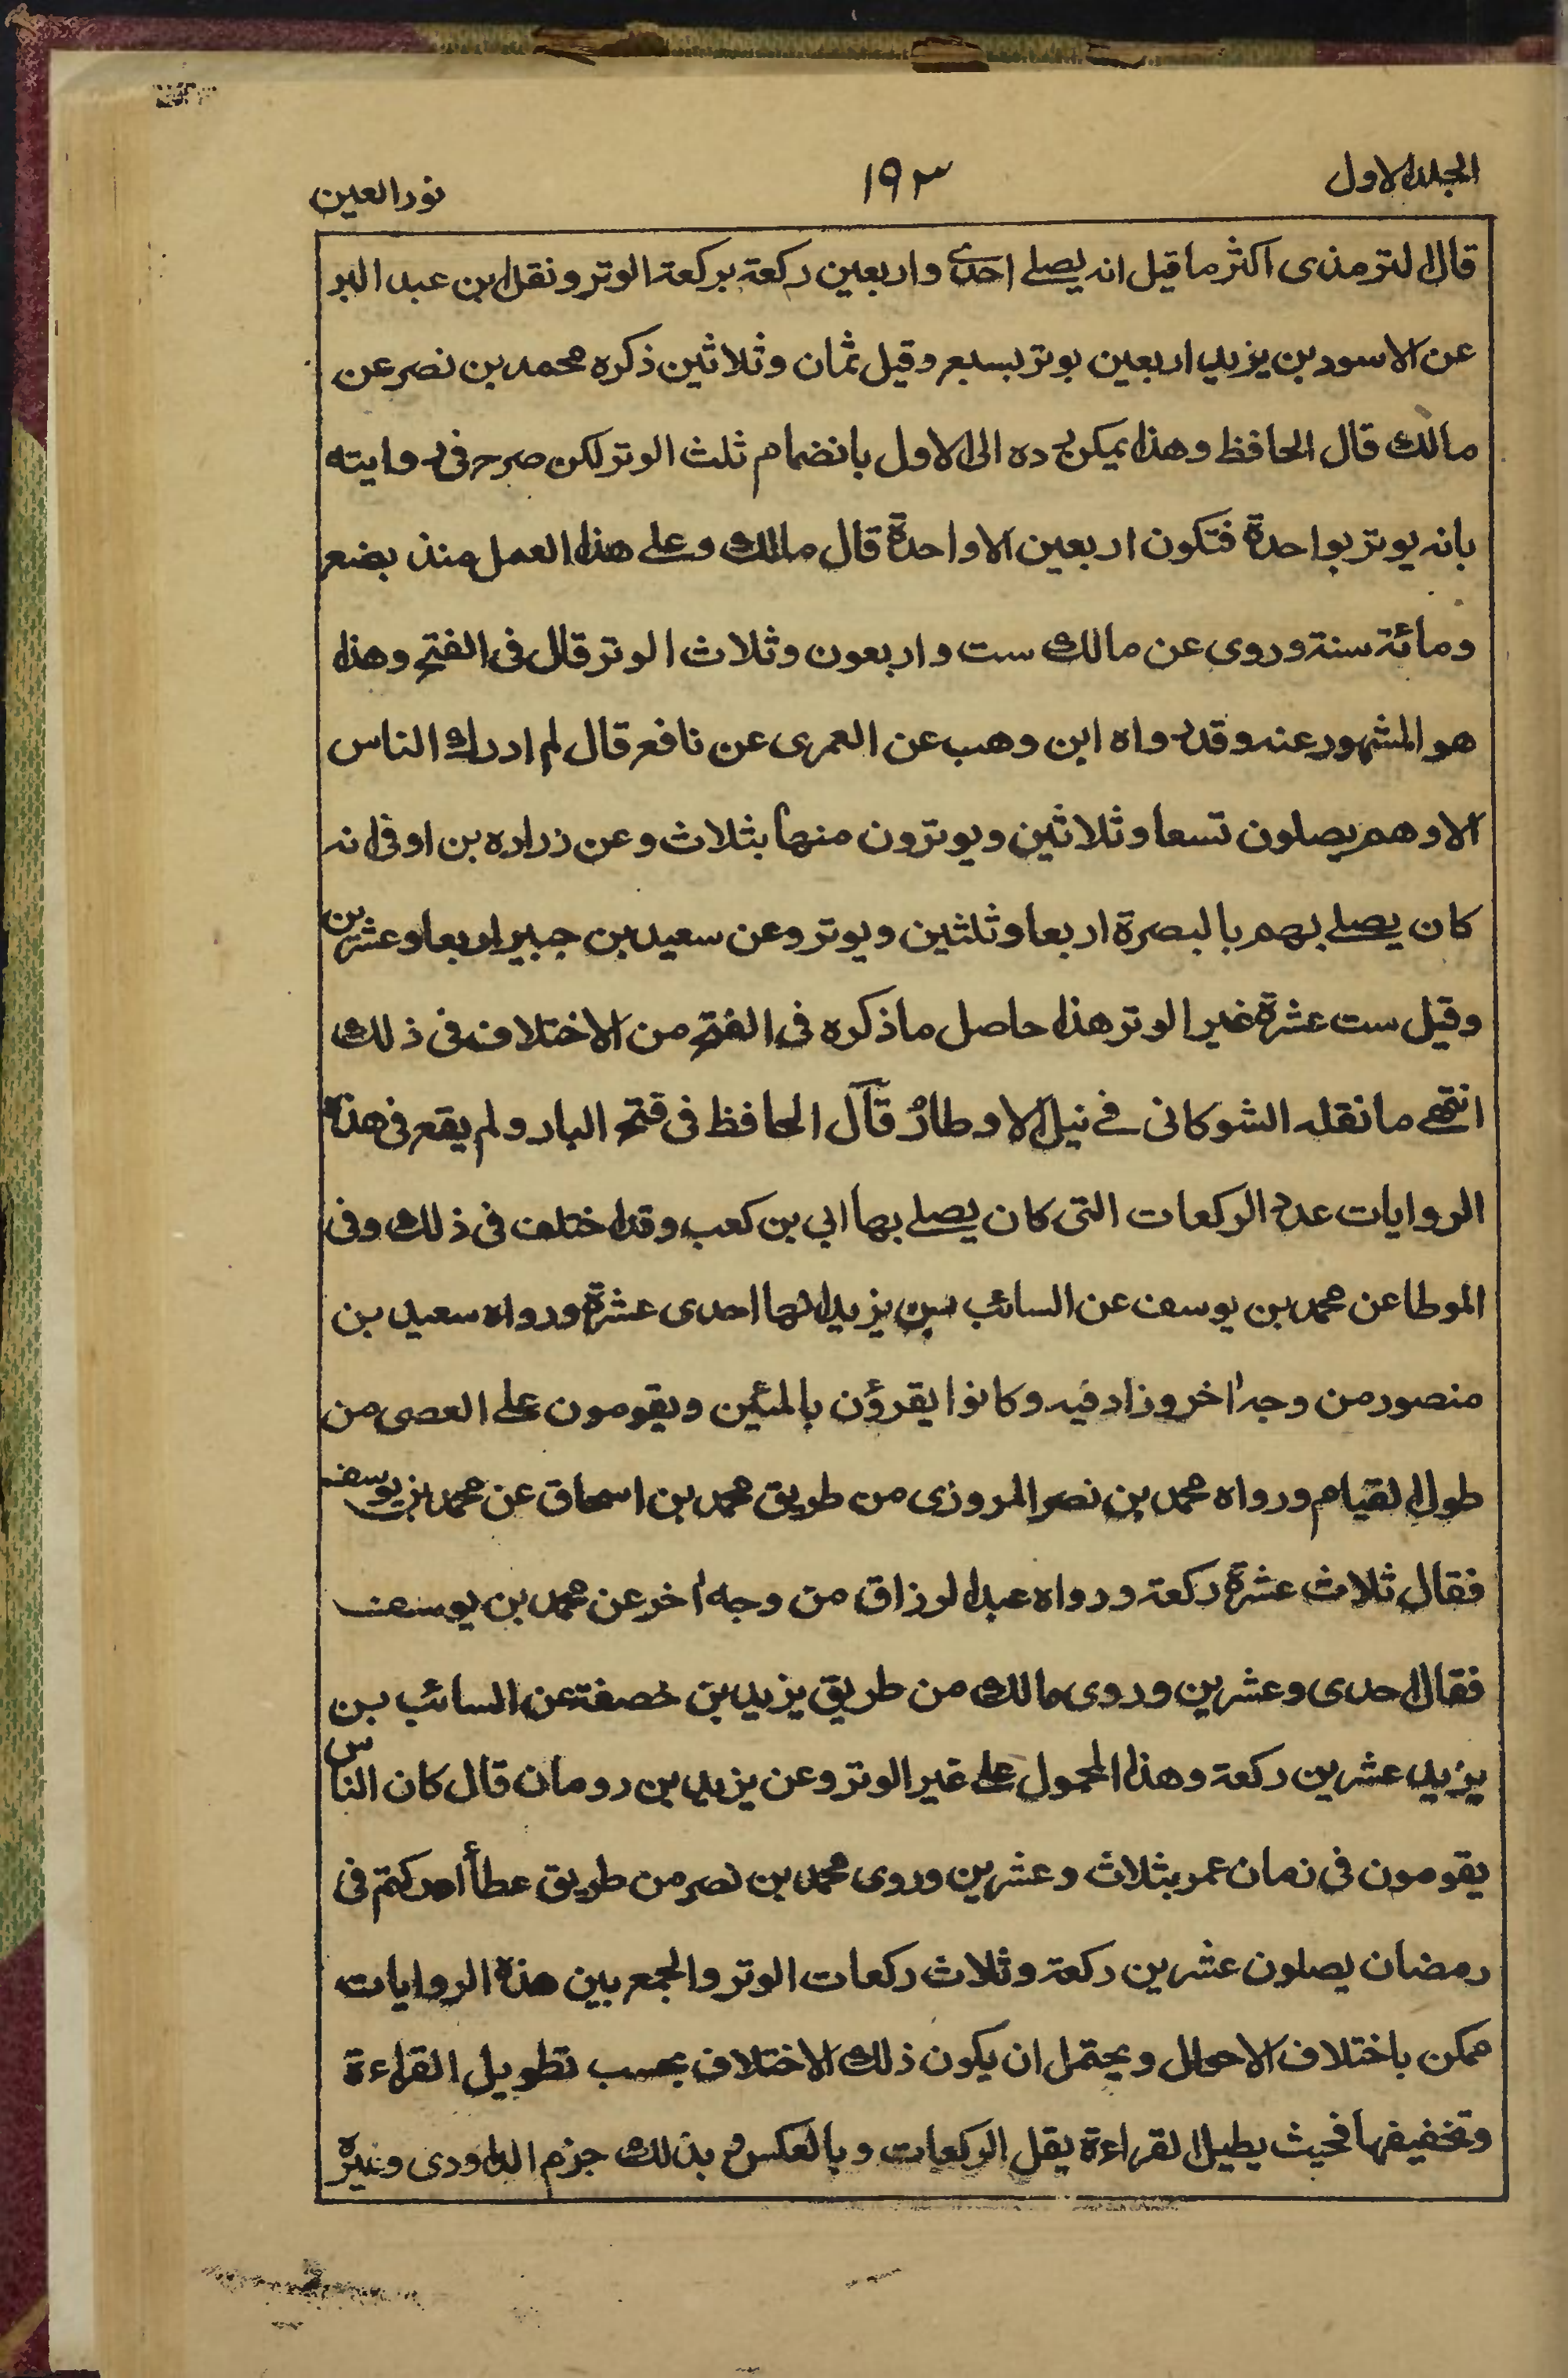 المجلد الاول
١٩٣
نور العين
قال الترمذى اكثر ما قيل انه يصلے احدى واربعين ركعة بركعة الوتر ونقل ابن عبد البر
عن الاسود بن يزيد اربعين يوتر بسبع وقيل ثمان وثلاثين ذكره محمد بن نصر عن
مالك قال الحافظ وهذا يمكن رده الى الاول بانضمام ثلث الوتر لكن صرح فى روايته
بانه يوتر بواحدة فتكون اربعين الا واحدة قال مالك وعلے هذا العمل منذ بضع
ومائة سنة وروى عن مالك ست واربعون وثلاث الوتر قال فى الفتح وهذا
هو المشهور عنه وقد رواه ابن وهب عن العمرى عن نافع قال لم ادرك الناس
الا وهم يصلون تسعا وثلاثين ويوترون منها بثلاث وعن زراره بن اوفى انه
كان يصلے بهم بالبصرة اربعا وثلثين ويوتر وعن سعيد بن جبير اربعا وعشرين
وقيل ست عشرة غير الوتر هذا حاصل ما ذكره فى الفتح من الاختلاف فى ذلك
انتهے ما نقله الشوكانى فے نيل الاوطار قال الحافظ فى فتح البار ولم يقع فى هذه
الروايات عدد الركعات التى كان يصلے بها ابي بن كعب وقد اختلف فى ذلك وفى
الموطا عن محمد بن يوسف عن السائب بن يزيد انها احدى عشرة ورواه سعيد بن
منصور من وجه اخر وزاد فيه وكانوا يقرؤن بالمئين ويقومون علے العصى من
طول القيام ورواه محمد بن نصر المروزى من طريق محمد بن اسحاق عن محمد بن يوسف
فقال ثلاث عشرة ركعة ورواه عبد الرزاق من وجه اخر عن محمد بن يوسف
فقال احدى وعشرين وروى مالك من طريق يزيد بن خصفة عن السائب بن
يزيد عشرين ركعة وهذا المحمول علے غير الوتر وعن يزيد بن رومان قال كان الناس
يقومون فى زمان عمر بثلاث وعشرين وروى محمد بن نصر من طريق عطأ ادركتم فى
رمضان يصلون عشرين ركعة وثلاث ركعات الوتر والجمع بين هذه الروايات
ممكن باختلاف الاحوال ويحتمل ان يكون ذلك الاختلاف بحسب تطويل القراءة
وتخفيفها فحيث يطيل القراءة يقل الركعات وبالعكس و بذلك جزم الداودى وغيره